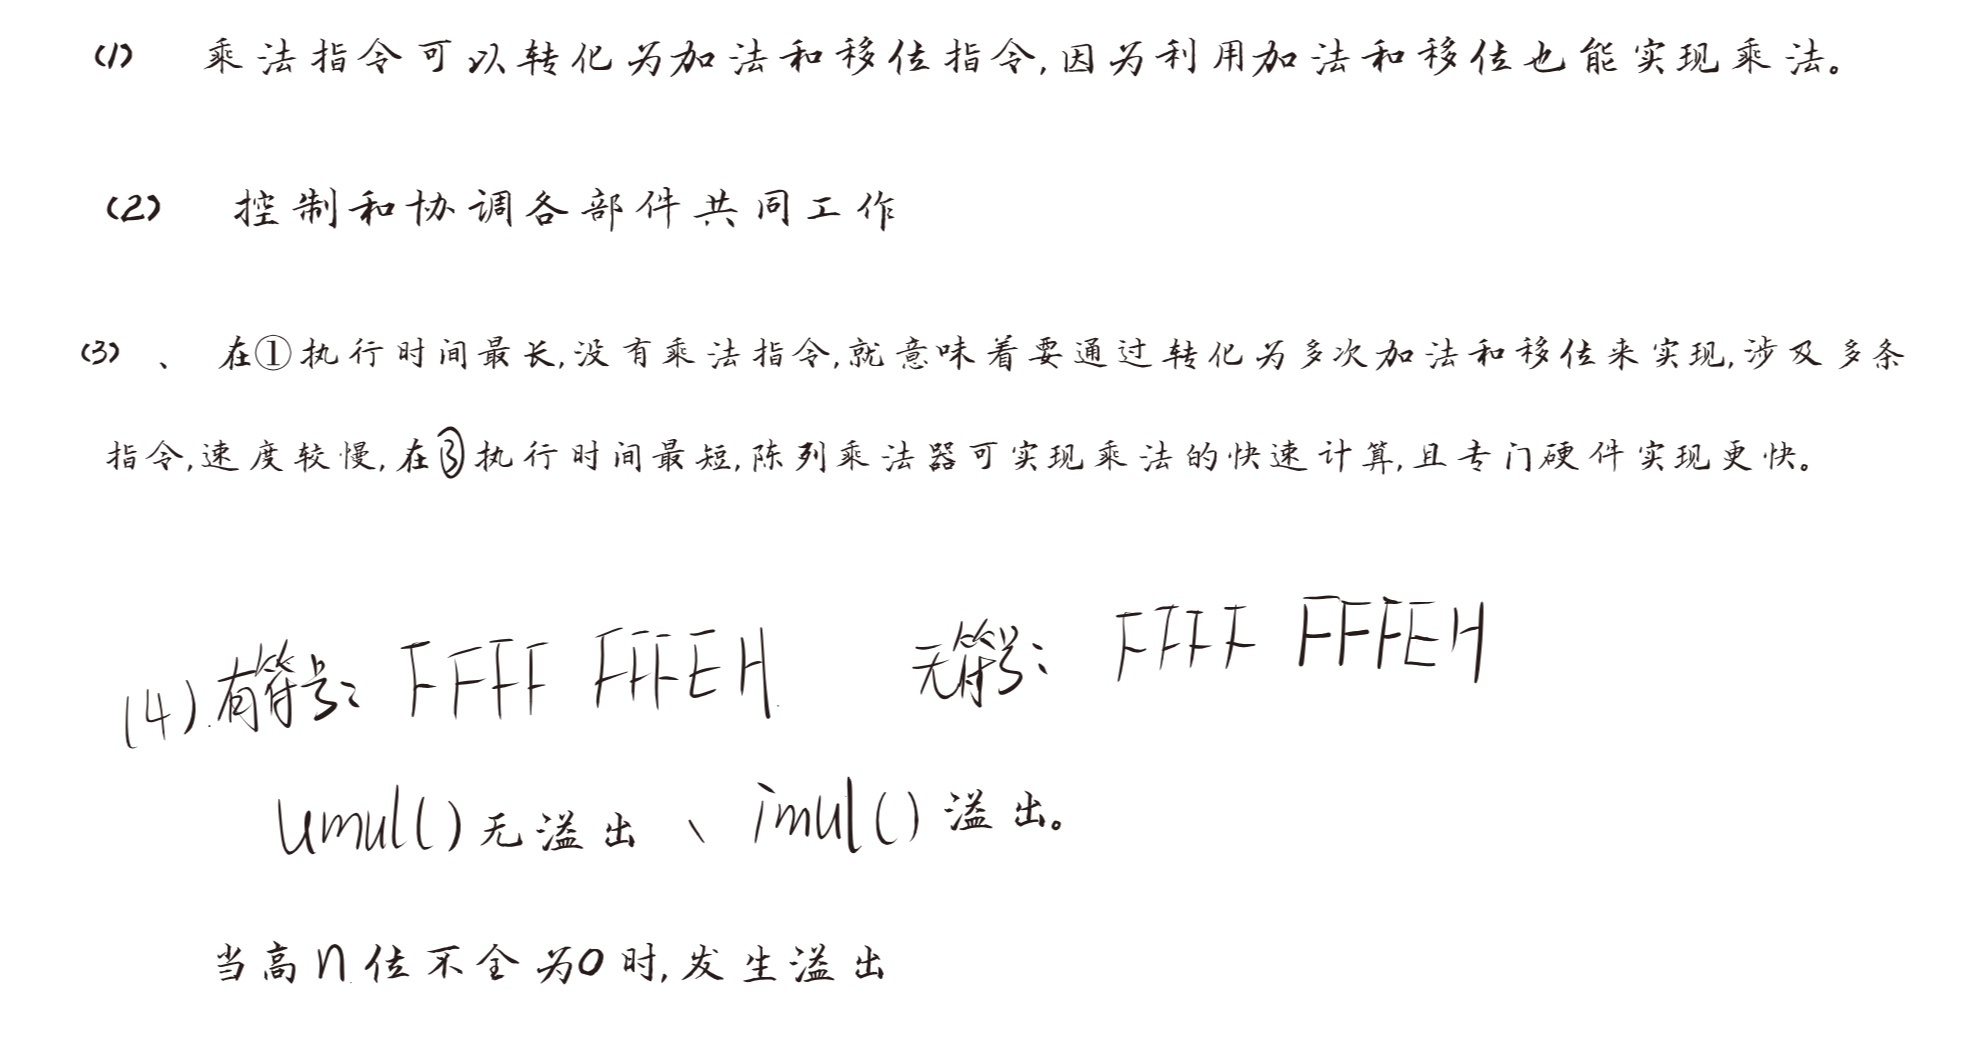 (1) 乘法指令可以转化为加法和移位指令,因为利用加法和移位也能实现乘法。
(2) 控制和协调各部件共同工作
(3) 、 在①执行时间最长,没有乘法指令,就意味着要通过转化为多次加法和移位来实现,涉及多条
指令,速度较慢,在③执行时间最短,陈列乘法器可实现乘法的快速计算,且专门硬件实现更快。
(4).有符号: FFFF FFFEH 无符号: FFFF FFFEH
umul()无溢出 、 imul()溢出。
当高n位不全为0时,发生溢出